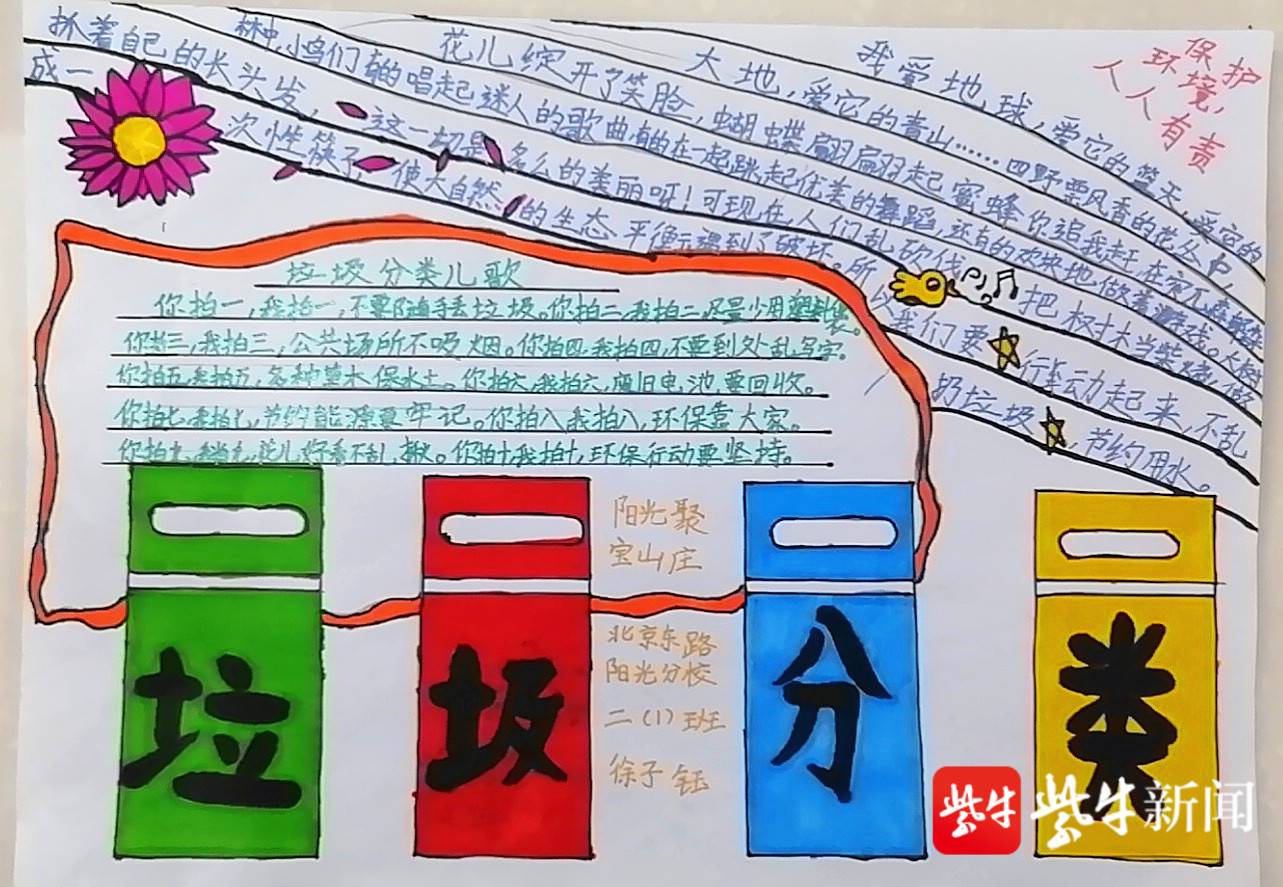 保护
环境,
人人有责
我爱地球,爱它的蓝天,爱它的
大地,爱它的青山……四野飘风香的花丛中,
花儿绽开了笑脸,蝴蝶翩翩起
蜜蜂你追我赶,在
林中,小鸟们有的唱起迷人的歌曲,有的在一起跳起优美的舞蹈,还有的欢快地做着游戏。
抓着自己的长头发,这一切是多么的美丽呀!可现在,人们乱砍伐
把树木当柴
成一次性筷子,使大自然的生态平衡遭到了破坏。所
以我们要行动起来,不乱
扔垃圾,节约用水。
垃圾分类儿歌
你拍一,我拍一,不要随手丢垃圾。你拍二,我拍二,尽量少用塑料袋。
你拍三,我拍三,公共场所不吸烟。你拍四,我拍四,不要到处乱写字。
你拍五,我拍五,多种草木保水土。你拍六,我拍六,废旧电池要回收。
你拍七,我拍七,节约能源要牢记。你拍八我拍八,环保靠大家。
你拍九,我拍九,花儿好看不乱揪。你拍十,我拍十,环保行动要坚持。
阳光聚
宝山庄
北京东路
阳光分校
二(1)班
徐子钰
垃圾分类
紫牛 紫牛新闻